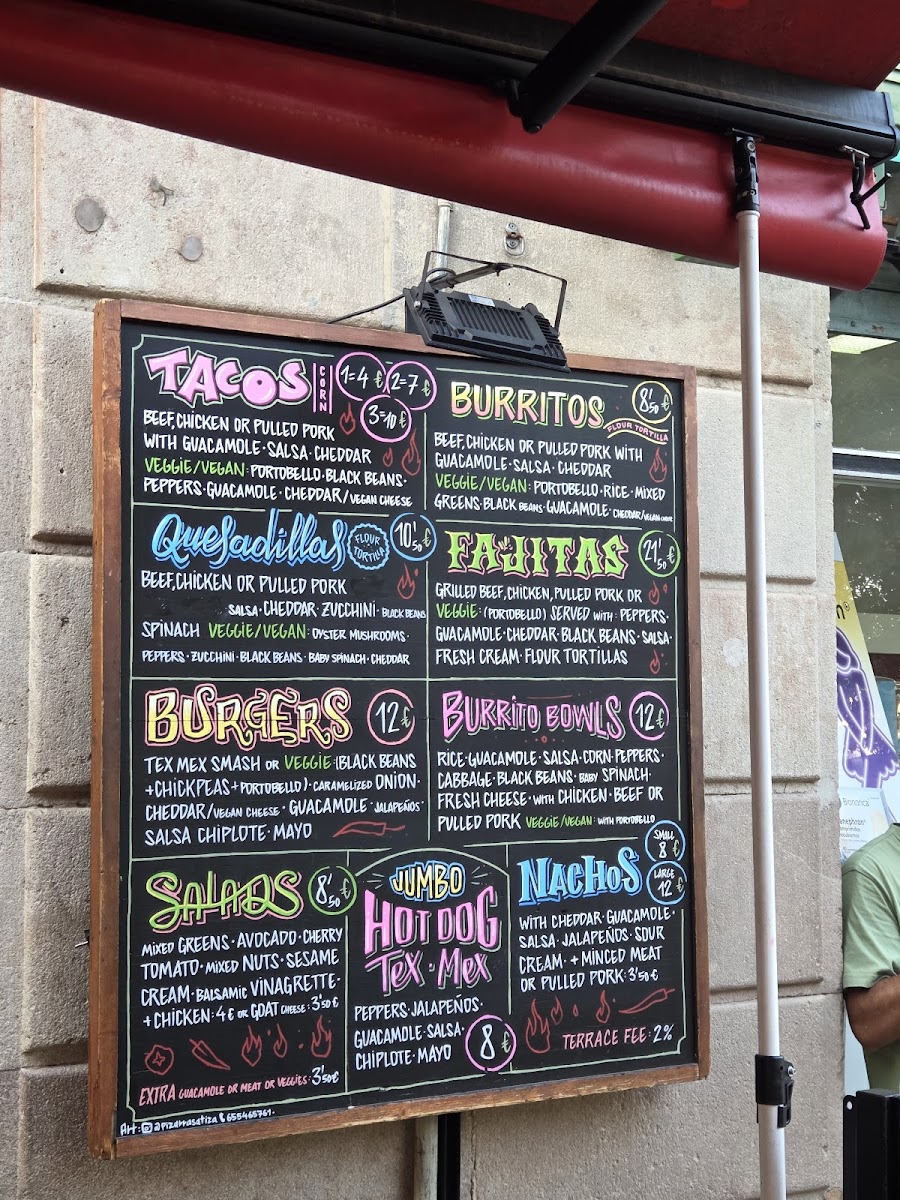 TACOS CORN 1=4€ 2=7€ 3=10€
BEEF, CHICKEN OR PULLED PORK
WITH GUACAMOLE · SALSA · CHEDDAR
VEGGIE/VEGAN: PORTOBELLO · BLACK BEANS ·
PEPPERS · GUACAMOLE · CHEDDAR/VEGAN CHEESE
BURRITOS 8'50€
FLOUR TORTILLA
BEEF, CHICKEN OR PULLED PORK WITH
GUACAMOLE · SALSA · CHEDDAR
VEGGIE/VEGAN: PORTOBELLO · RICE · MIXED
GREENS · BLACK BEANS · GUACAMOLE · CHEDDAR/VEGAN CHEESE
Quesadillas FLOUR TORTILLA 10'50€
BEEF, CHICKEN OR PULLED PORK
SALSA · CHEDDAR · ZUCCHINI · BLACK BEANS
SPINACH VEGGIE/VEGAN: OYSTER MUSHROOMS ·
PEPPERS · ZUCCHINI · BLACK BEANS · BABY SPINACH · CHEDDAR
FAJITAS 21'50€
GRILLED BEEF, CHICKEN, PULLED PORK OR
VEGGIE: (PORTOBELLO) SERVED WITH: PEPPERS ·
GUACAMOLE · CHEDDAR · BLACK BEANS · SALSA ·
FRESH CREAM · FLOUR TORTILLAS
BURGERS 12€
TEX MEX SMASH OR VEGGIE: (BLACK BEANS
+ CHICKPEAS + PORTOBELLO) · CARAMELIZED ONION ·
CHEDDAR/VEGAN CHEESE · GUACAMOLE · JALAPEÑOS ·
SALSA CHIPLOTE · MAYO
BURRITO BOWLS 12€
RICE · GUACAMOLE · SALSA · CORN · PEPPERS ·
CABBAGE · BLACK BEANS · BABY SPINACH ·
FRESH CHEESE · WITH CHICKEN · BEEF OR
PULLED PORK VEGGIE/VEGAN: WITH PORTOBELLO
SALADS 8'50€
MIXED GREENS · AVOCADO · CHERRY
TOMATO · MIXED NUTS · SESAME
CREAM · BALSAMIC VINAGRETTE ·
+ CHICKEN: 4€ OR GOAT CHEESE: 3'50€
EXTRA GUACAMOLE OR MEAT OR VEGGIES: 3'50€
JUMBO
HOT DOG
TEX · MEX
PEPPERS · JALAPEÑOS ·
GUACAMOLE · SALSA ·
CHIPLOTE · MAYO
8€
NACHOS SMALL 8€
LARGE 12€
WITH CHEDDAR · GUACAMOLE ·
SALSA · JALAPEÑOS · SOUR
CREAM · + MINCED MEAT
OR PULLED PORK: 3'50€
TERRACE FEE: 2%
Art: @pizarrasatiza 655465761 ·